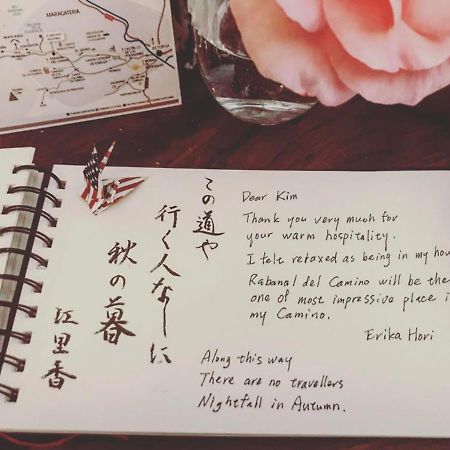 MARAGATERIA
この道や
行く人なしに
秋の暮
江里香
Dear Kim
Thank you very much for
your warm hospitality.
I felt relaxed as being in my hou
Rabanal del Camino will be the
one of most impressive place i
my Camino.
Erika Hori
Along this way
There are no travellers
Nightfall in Autumn.